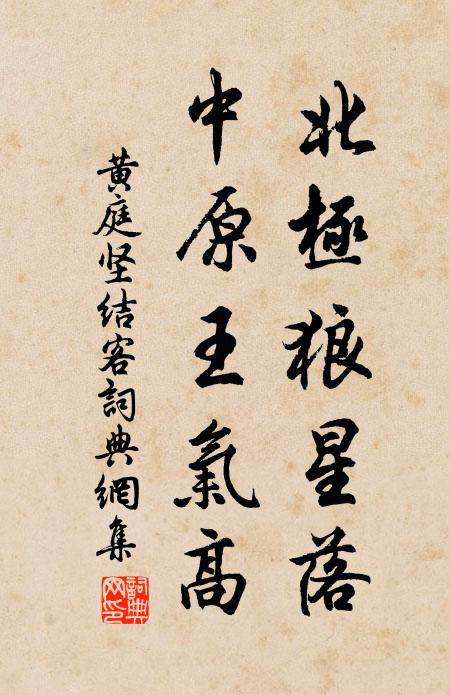 北極狼星落
中原王氣高
黄庭坚结客詞典網集
詞典